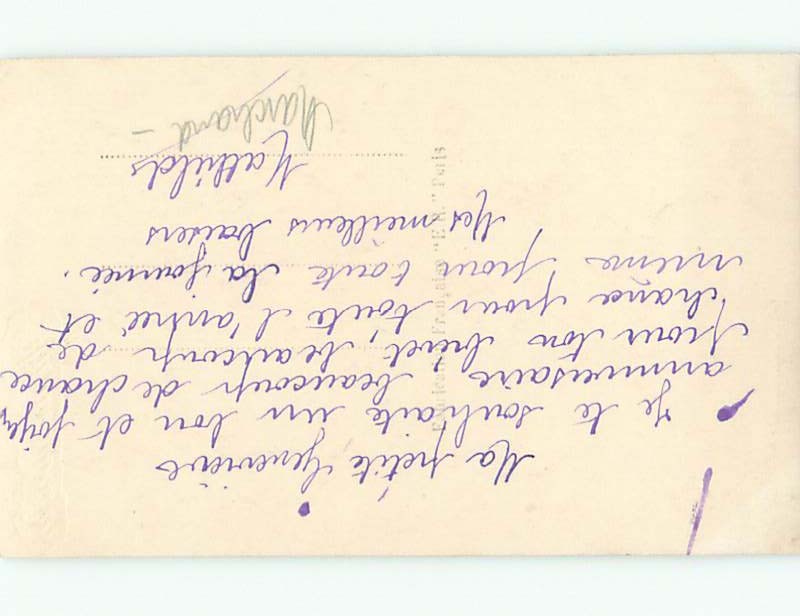 Ma petite Geneviève
Je te souhaite un bon et joyeux
anniversaire, beaucoup de chance
pour ton brevet, beaucoup de
chance pour toute l'année et
même pour toute la journée.
Mes meilleurs baisers
Mathilde
Marchand -
Françaises "E.R." Paris